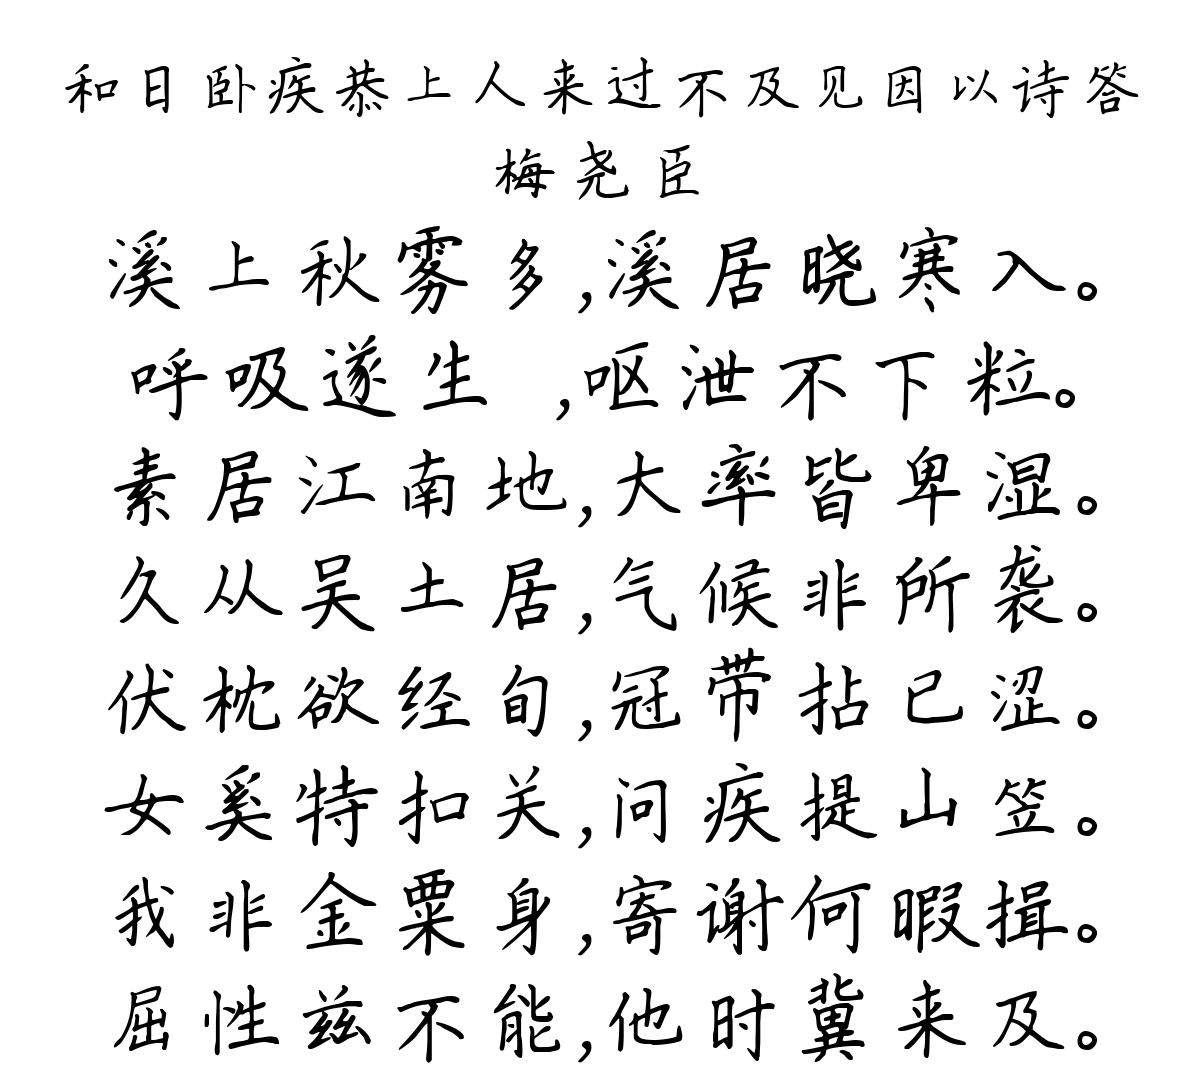 和日卧疾恭上人来过不及见因以诗答
梅尧臣
溪上秋雾多,溪居晓寒入。
呼吸遂生 ,呕泄不下粒。
素居江南地,大率皆卑湿。
久从吴土居,气候非所袭。
伏枕欲经旬,冠带拈已涩。
女奚特扣关,问疾提山笠。
我非金粟身,寄谢何暇揖。
屈性兹不能,他时冀来及。